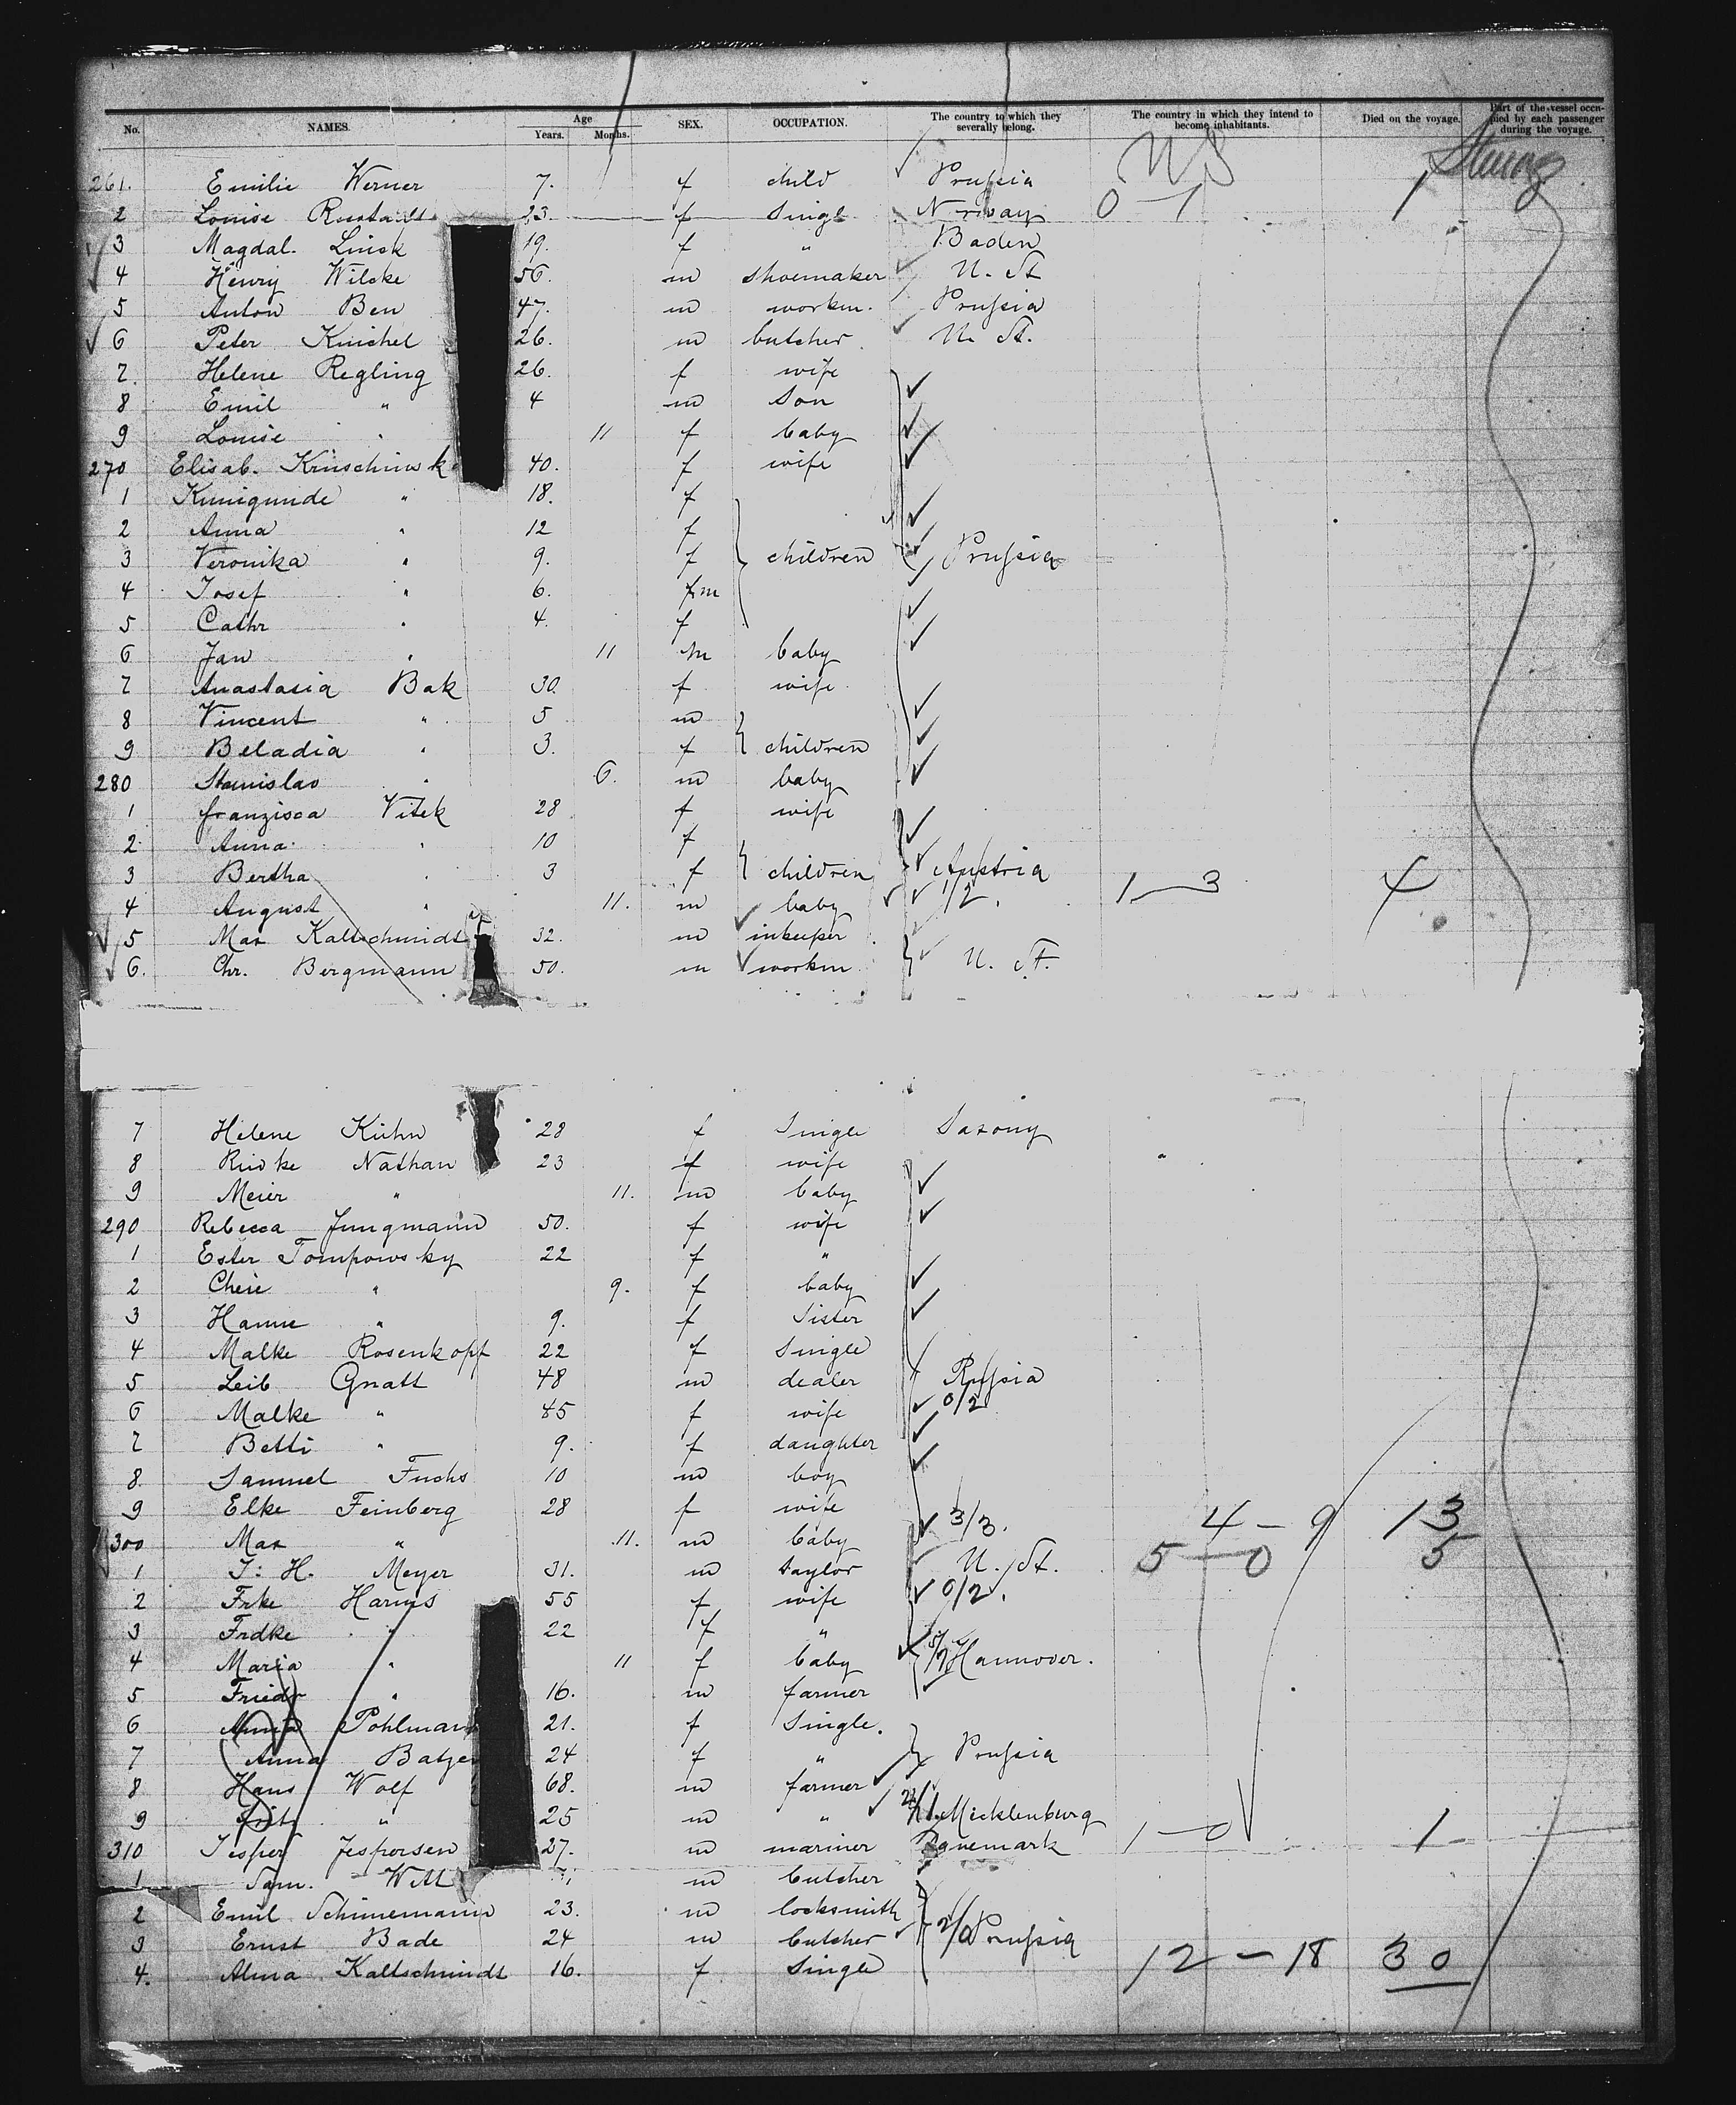 No. NAMES. Age Years. Months. SEX. OCCUPATION. The country to which they severally belong. The country in which they intend to become inhabitants. Died on the voyage. Part of the vessel occupied by each passenger during the voyage.
261. Emilie Werner 7. f child Prussia US
2 Louise 23. f Single Norway 0 - 1 1
3 Magdal. Linck 19. f " Baden
4 Henry Wilcke 56. m shoemaker U. St
5 Anton Ben 47. m workm. Prussia
6 Peter Knichel 26. m butcher U. St.
7. Helene Regling 26. f wife
8 Emil " 4 m Son
9 Louise " 11 f baby
270 Elisab. 40. f wife
1 Kunigunde " 18. f
2 Anna " 12 f
3 Veronika " 9. f children Prussia
4 Josef " 6. m
5 Cathr " 4. f
6 Jan " 11 m baby
7 Anastasia Bak 30. f wife
8 Vincent " 5 m
9 Beladia " 3. f children
280 Stanislav " 6. m baby
1 Franzisca Vitek 28 f wife
2. Anna " 10 f
3 Bertha " 3 f children Austria
4 August " 11. m baby 1/2. 1 - 3 4
5 Max Kaltschmidt 32. m inkeeper
6. Chr. Bergmann 50. m workm U. St.
7 Helene Kühn 28 f Single Saxony
8 Riwke Nathan 23 f wife
9 Meier " 11. m baby
290 Rebecca Jungmann 50. f wife
1 Ester Tompowsky 22 f "
2 Cheie " 9. f baby
3 Hanne " 9. f Sister
4 Malke Rosenkopf 22 f Single
5 Leib Gnatt 48 m dealer Russia
6 Malke " 45 f wife 0/2
7 Betti " 9. f daughter
8. Samuel Fuchs 10 m boy
9 Elke Feinberg 28 f wife 3/3. 4 - 9 13
300 Max " 11. m baby 5 - 0 5
1 J. H. Meyer 31. m taylor U. St.
2 Frke Harms 55 f wife 0/2.
3 Frdke " 22 f "
4 Maria " 11 f baby Hannover.
5 Friedr " 16. m farmer
6 Anna Pohlmann 21. f Single.
7 Anna 24 f " Prussia
8 Hans Wolf 68. m farmer
9 Fritz " 25 m " Mecklenburg
310 Jesper Jespersen 27. m mariner Danemark 1 - 0 1
1 Sam. Witt m butcher
2 Emil Schünemann 23. m locksmith
3 Ernst Bade 24 m butcher 2/0 Prussia
4. Alma Kaltschmidt 16. f Single 12 - 18 30